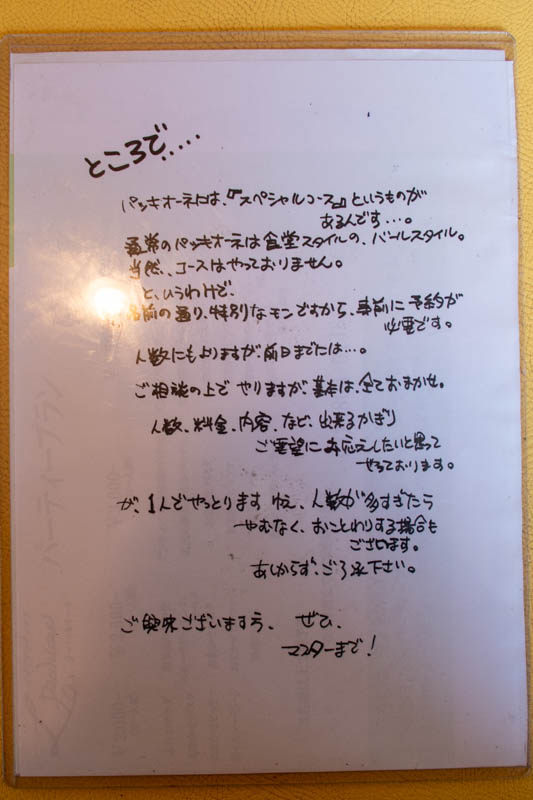 ところで.....
パッキオーネには、『スペシャルコース』というものが
あるんです・・・。
通常のパッキオーネは食堂スタイルの、バールスタイル。
当然、コースはやっておりません。
と、いうわけで、
名前の通り、特別なモンですから、事前に予約が
必要です。
人数にもよりますが、前日までには・・・。
ご相談の上で やりますが、基本は、全ておまかせ。
人数、料金、内容、など、出来るかぎり
ご要望にお応えしたいと思って
やっております。
が、1人でやっとります ゆえ、人数が多すぎたら
やむなく、おことわりする場合も
ございます。
あしからず、ご了承下さい。
ご興味ございますう、 ぜひ、
マスターまで!
パーティープラン